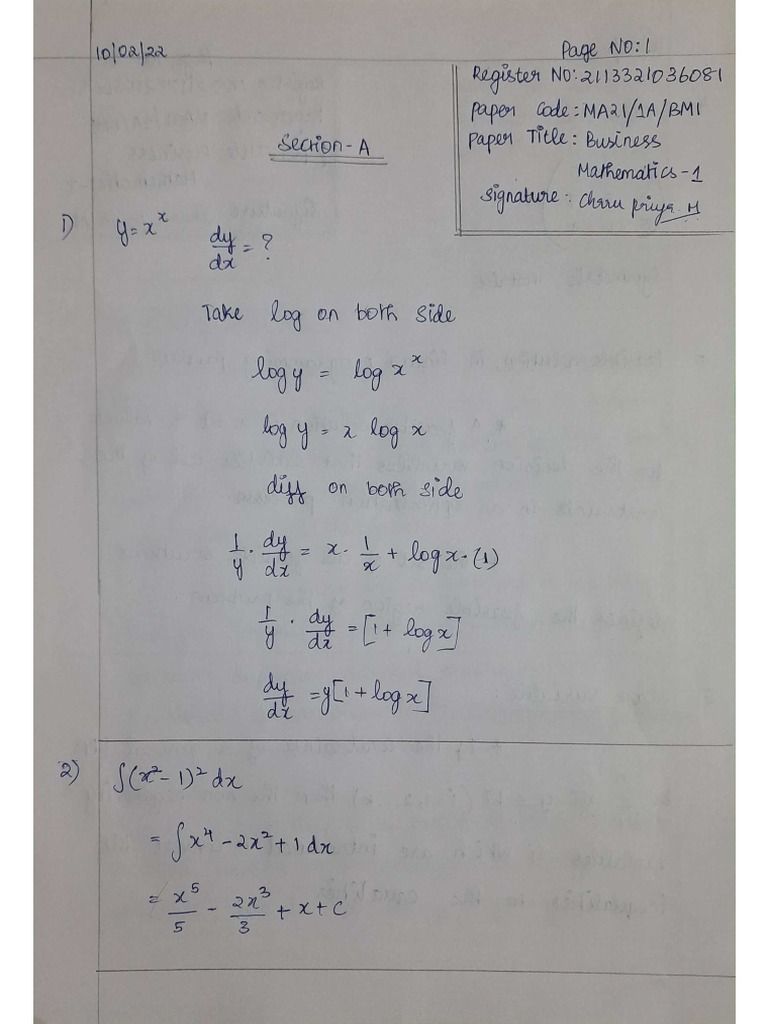 10/02/22
Page NO:1
Register NO: 2113321036081
Paper Code: MA21/1A/BM1
Paper Title: Business
Mathematics-1
Signature: Charu Priya. M
Section-A
1) y = x^x dy/dx = ?
Take log on both side
log y = log x^x
log y = x log x
diff on both side
1/y · dy/dx = x · 1/x + log x · (1)
1/y · dy/dx = [1 + log x]
dy/dx = y[1 + log x]
2) ∫(x² - 1)² dx
= ∫x⁴ - 2x² + 1 dx
= x⁵/5 - 2x³/3 + x + c